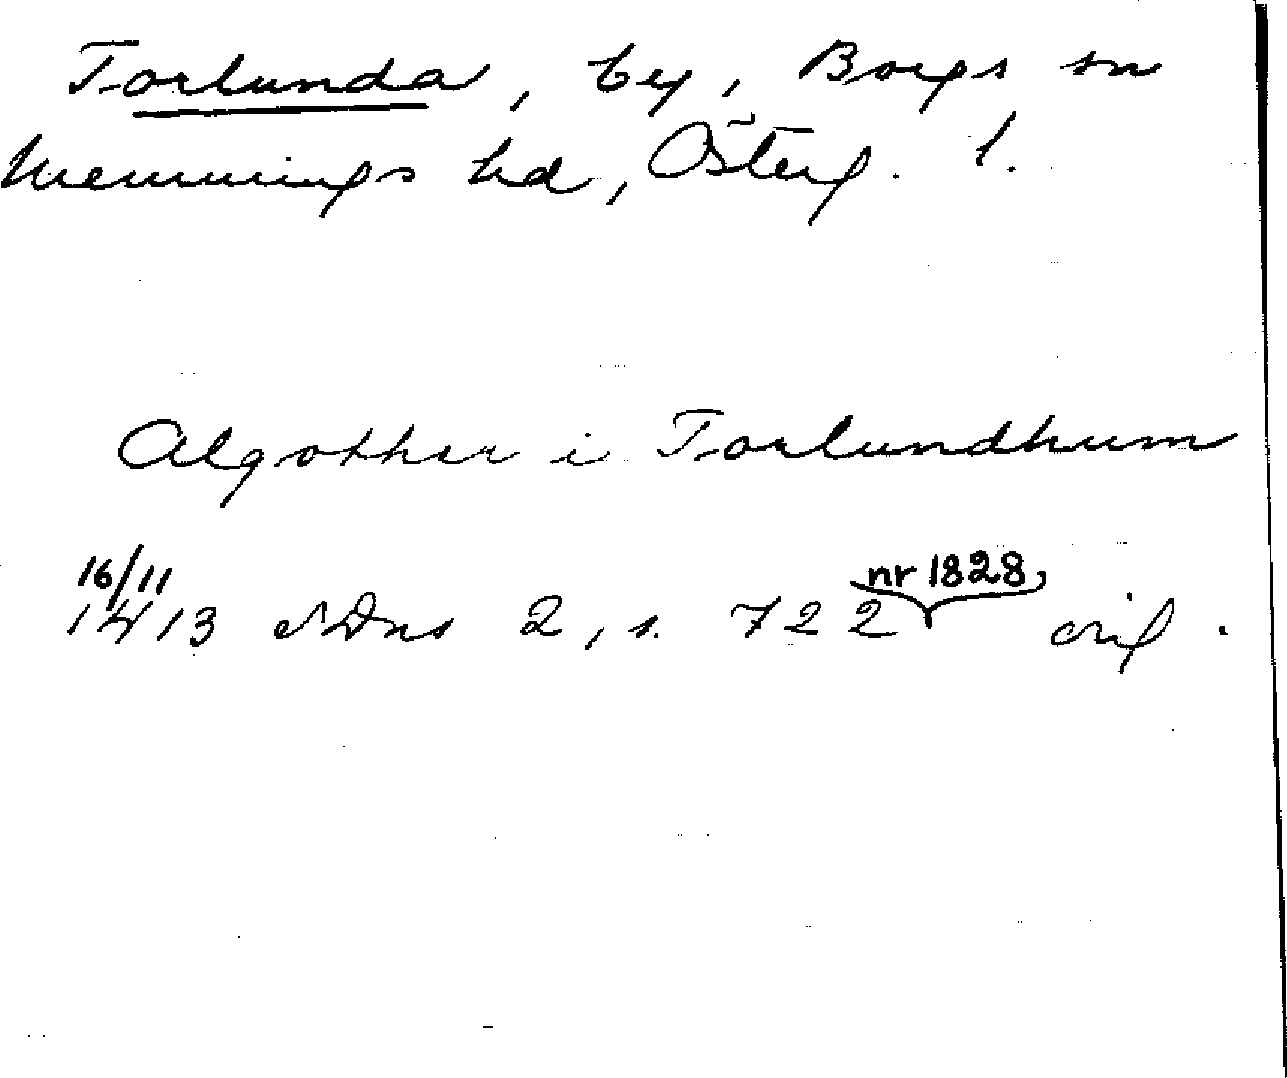 Torlunda, by, Borgs sn
Memmings hd, Österg. l.
Algother i Torlundhum
16/11 nr 1828,
1413 SDns 2, s. 722 orig.